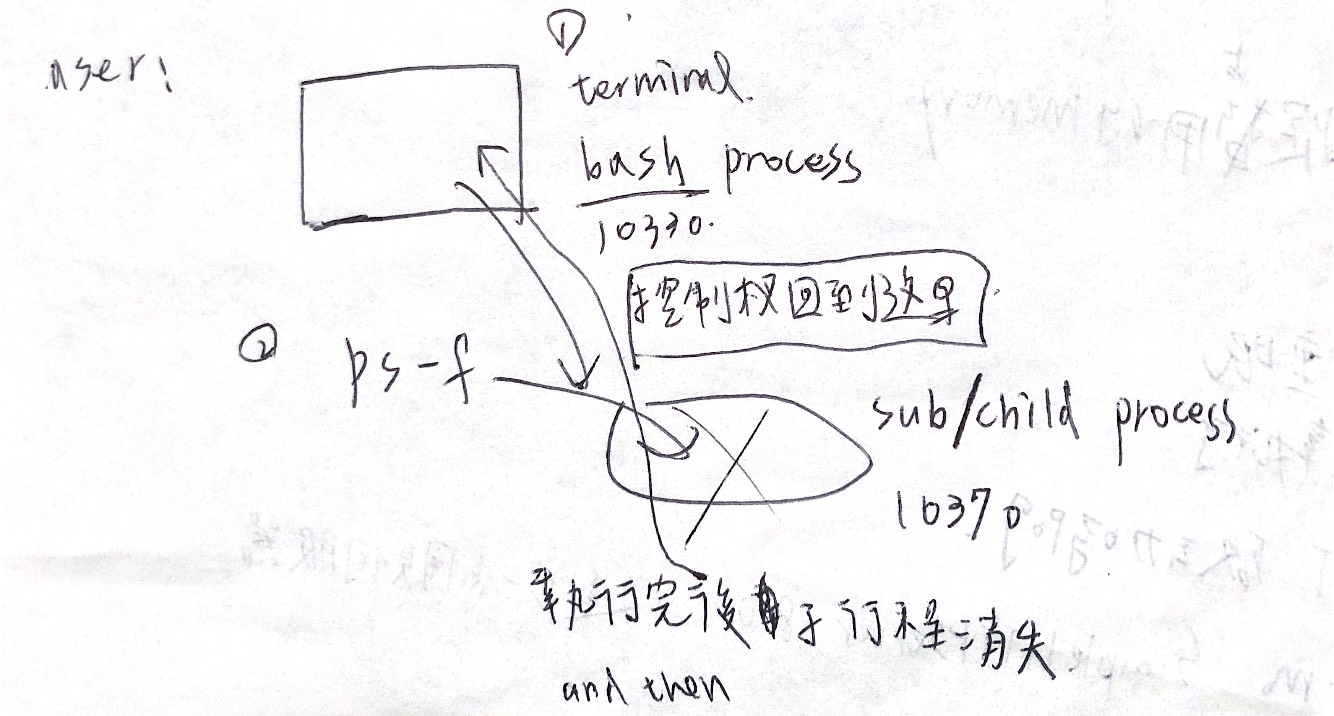 user:
①
terminal.
bash process
10330.
控制权回到这里
② ps-f
sub/child process.
10370
執行完後子行程消失
and then